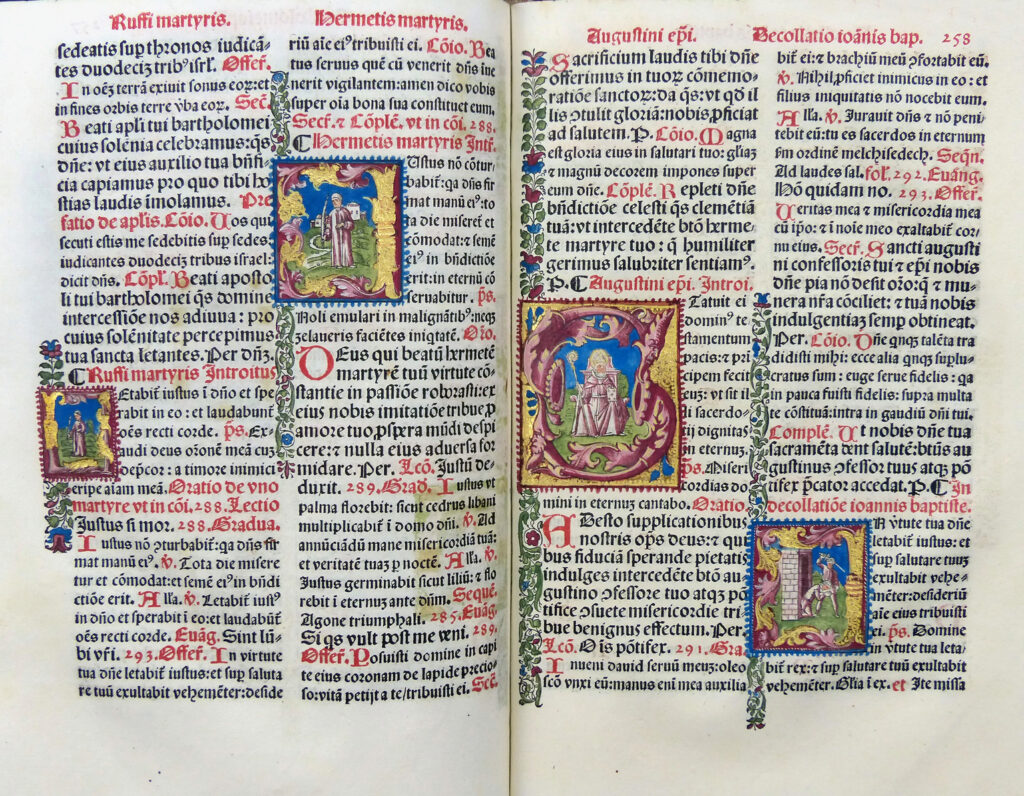 Ruffi martyris.
sedeatis sup thronos iudicã-
tes duodeciʒ trib⁹ isrl̃. Offer̃.
In oẽʒ terrã exiuit sonus eoꝝ: et
in fines orbis terre ṽba eoꝝ. Sec̃.
Beati apl̃i tui bartholomei
cuius solẽnia celebramus: q̃s
dñe: vt eius auxilio tua bñfi
cia capiamus pro quo tibi ho
stias laudis imolamus. Pre
fatio de aplis. Cõio. Uos qui
secuti estis me sedebitis sup sedes:
iudicantes duodeciʒ tribus israel:
dicit dñs. Cõpl̃. Beati aposto
li tui bartholomei q̃s domine
intercessiõe nos adiuua: pro
cuius solẽnitate percepimus
tua sancta letantes. Per dñʒ.
Ruffi martyris Introitus
Letabit̃ iustus ĩ dño et spe
rabit in eo: et laudabunt̃
oẽs recti corde. p̃s. Ex-
audi deus orõnẽ meã cuʒ
dep̃cor: a timore inimici
eripe aĩam meã. Oratio de vno
martyre vt in cõi. 288. Lectio
Justus si mor. 288. Gradua.
Iustus nõ ɔturbabit̃: qa dñs fir
mat manũ ei⁹. v̄. Tota die misere
tur et cõmodat: et semẽ ei⁹ in bñdi
ctiõe erit. Alla. v̄. Letabit̃ iust⁹
in dño et sperabit ĩ eo: et laudabũt̃
oẽs recti corde. Euãg. Sint lũ-
bi vr̃i. 293. Offer̃. In virtute
tua dñe letabit̃ iustus: et sup saluta
re tuũ exultabit vehemẽter: deside
Hermetis martyris.
riũ aĩe ei⁹ tribuisti ei. Cõio. Bea
tus seruus quẽ cũ venerit dñs iue
nerit vigilantem: amen dico vobis
super oĩa bona sua constituet eum.
Secr̃. ⁊ Cõplẽ. vt in cõi. 288.
Hermetis martyris Intr̃.
Iustus nõ cõtur
babit̃: qa dñs fir
mat manũ ei⁹: to
ta die miseret̃ et
cõmodat: et semẽ
ei⁹ in bñdictiõe
erit: in eternũ cõ
seruabitur. p̃s.
Noli emulari in malignãtib⁹: neqʒ
zelaueris faciẽtes iniqtatẽ. Oro.
Deus qui beatũ hermetẽ
martyrẽ tuũ virtute cõ-
stantie in passiõe roborasti: ex
eius nobis imitatiõe tribue ꝓ
amore tuo ꝓspera mũdi despi
cere: ⁊ nulla eius aduersa for
midare. Per. Lcõ. Justũ de-
duxit. 289. Grad. Iustus vt
palma florebit: sicut cedrus libani
multiplicabit̃ ĩ domo dñi. v̄. Ad
annũciãdũ mane misericordiã tuã:
et veritatẽ tuaʒ p noctẽ. Alla. v̄.
Justus germinabit sicut liliũ: ⁊ flo
rebit ĩ eternuʒ ante dñm. Sequẽ.
Agone triumphali. 285. Euãg.
Si qs vult post me veni. 289.
Offer̃. Posuisti domine in capi
te eius coronam de lapide precio-
so: vitã petijt a te / tribuisti ei. Sec̃.
Augustini ep̃i.
Sacrificium laudis tibi dñe
offerimus in tuoꝝ cõmemo-
ratiõe sanctoꝝ: da q̃s: vt qd̃ il
lis ɔtulit gloriã: nobis ꝓficiat
ad salutem. P. Cõio. Magna
est gloria eius in salutari tuo: gliaʒ
⁊ magnũ decorem impones super
eum dñe. Cõplẽ. Repleti dñe
bñdictiõe celesti q̃s clemẽtiã
tuã: vt intercedẽte btõ herme-
te martyre tuo: q̃ humiliter
gerimus salubriter sentiam⁹.
P. Augustini ep̃i. Introi.
Statuit ei
domin⁹ te
stamentum
pacis: et prĩ
cipem fecit
euʒ: vt sit il
li sacerdo-
tij dignitas
in eternuʒ.
p̃s. Miseri
cordias do
mini in eternuʒ cantabo. Oratio.
Adesto supplicationibus
nostris op̃s deus: ⁊ qui
bus fiduciã sperande pietatis
indulges intercedẽte btõ au-
gustino ɔfessore tuo atqʒ põ
tifice ɔsuete misericordie tri-
bue benignus effectum. Per.
Lcõ. Ois põtifex. 291. Gra.
Inueni dauid seruũ meuʒ: oleo
scõ vnxi eũ: manus enĩ mea auxilia
Decollatio ioãnis bap. 258
bit̃ ei: ⁊ brachiũ meũ ɔfortabit eũ.
v̄. Nihil ꝓficiet inimicus in eo: et
filius iniquitatis nõ nocebit eum.
Alla. v̄. Jurauit dñs ⁊ nõ peni-
tebit eũ: tu es sacerdos in eternum
fm ordinem melchisedech. Seqñ.
Ad laudes sal. fol. 292. Euãng.
Hõ quidam no. 293. Offer̃.
Ueritas mea ⁊ misericordia mea
cũ ip̃o: ⁊ ĩ noĩe meo exaltabit̃ cor-
nu eius. Secr̃. Sancti augusti
ni confessoris tui ⁊ ep̃i nobis
dñe pia nõ desit orõ: q̃ ⁊ mu-
nera nr̃a cõciliet: ⁊ tuã nobis
indulgentiaʒ semp obtineat.
Per. Cõio. Dñe qnqʒ talẽta tra
didisti mihi: ecce alia qnqʒ suplu-
cratus sum: euge serue fidelis: qa
in pauca fuisti fidelis: supra multa
te cõstituã: intra in gaudiũ dñi tui.
Complẽ. Ut nobis dñe tua
sacramẽta dent salutẽ: btũs au
gustinus ɔfessor tuus atqʒ põ
tifex p̃cator accedat. P. In
decollatiõe ioannis baptiste.
In ṽtute tua dñe
letabit̃ iustus: et
sup salutare tuuʒ
exultabit vehe-
mẽter: desideriũ
aĩe eius tribuisti
ei. p̃s. Domine
in ṽtute tua leta
bit̃ rex: ⁊ sup salutare tuũ exultabit
vehemẽter. Glia ĩ ex. et Ite missa